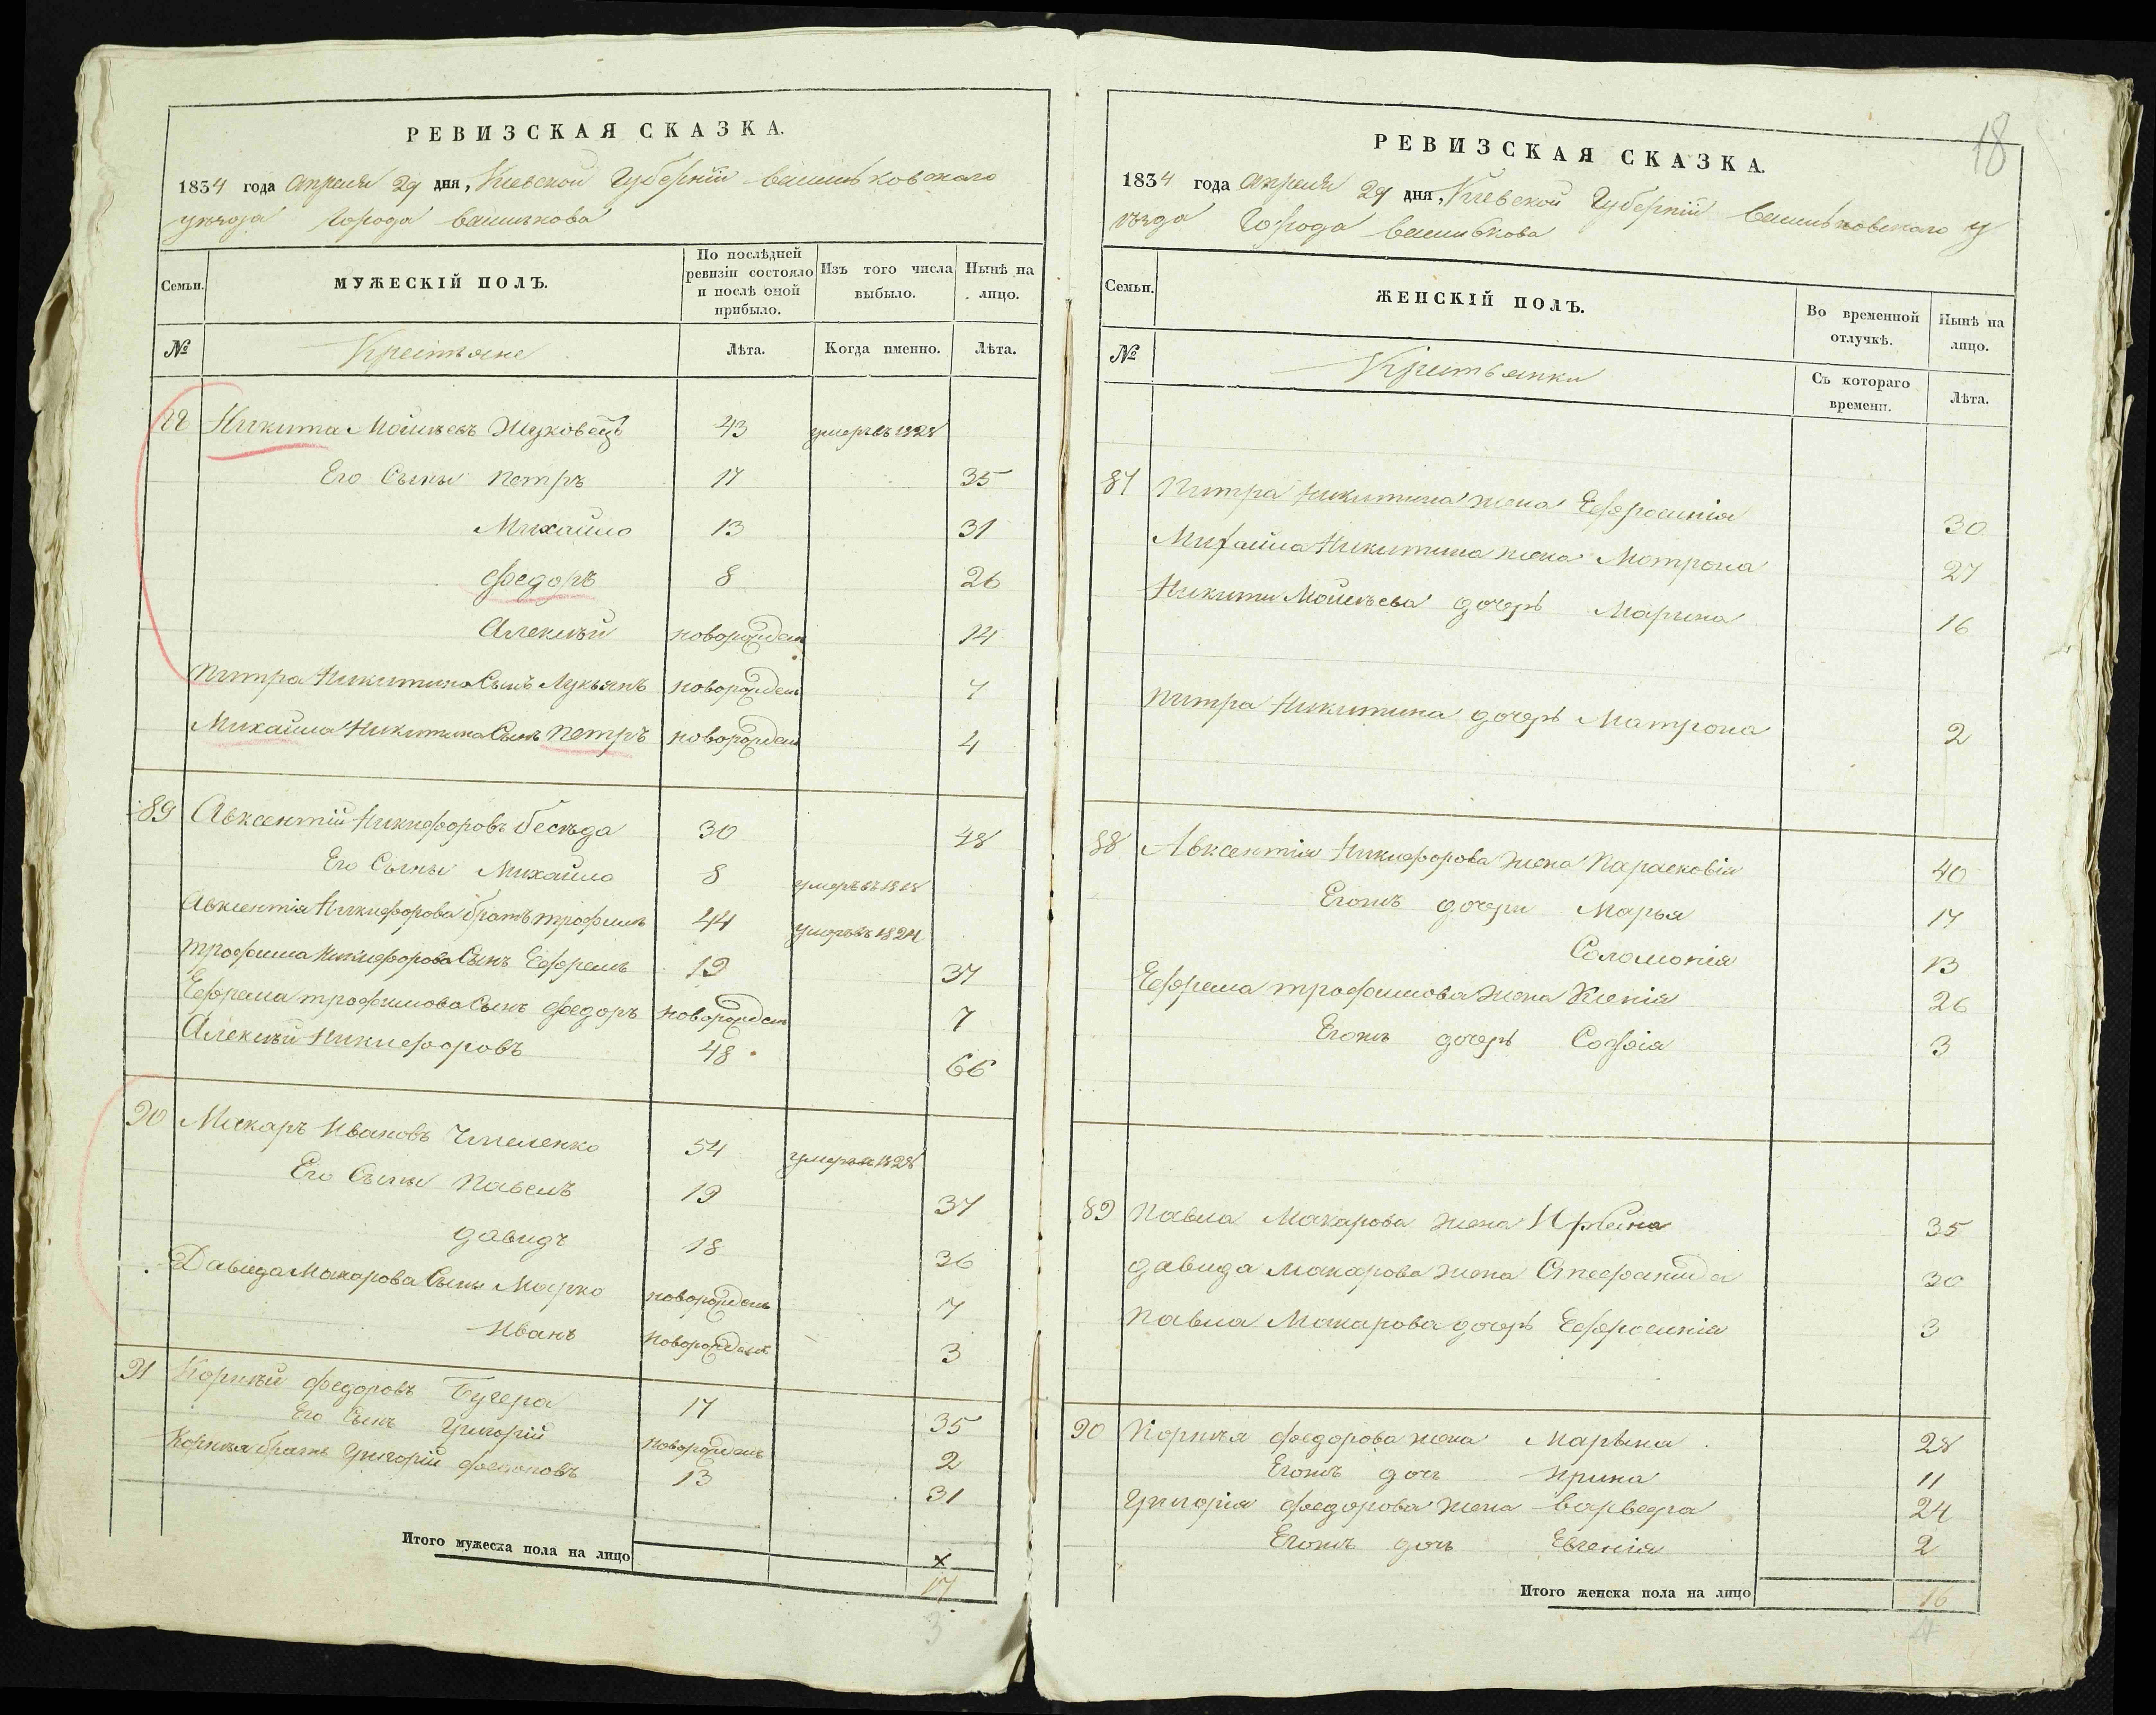 РЕВИЗСКАЯ СКАЗКА.
1834 года Апреля 29 дня, Киевской Губерніи Васильковскаго
уѣзда Города Василькова
Семьи. МУЖЕСКІЙ ПОЛЪ. По послѣдней ревизіи состояло и послѣ оной прибыло. Изъ того числа выбыло. Нынѣ на лицо.
№ Крестьяне Лѣта. Когда именно. Лѣта.
Никита Моисѣевъ Жуковецъ 43 умеръ въ 1828
Его Сыны Петръ 17 35
Михайло 13 31
Федоръ 8 26
Алексѣй новорожден 14
Петра Никитина Сынъ Лукьянъ новорожден 7
Михайла Никитина Сынъ Петръ новорожден 4
89 Авксентій Никифоровъ Бесѣда 30 48
Его Сыны Михайло 8 умеръ въ 1818
Авксентія Никифорова братъ Трофимъ 44 умеръ въ 1824
Трофима Никифорова Сынъ Ефремъ 19 37
Ефрема Трофимова Сынъ Федоръ новорожден 7
Алексѣй Никифоровъ 48 66
90 Макаръ Ивановъ Чмеленко 54 умеръ 1828
Его Сыны Павелъ 19 37
Давидъ 18 36
Давида Макарова Сыны Марко новорожденъ 7
Иванъ новорожден 3
91 Корнѣй Федоровъ Бугера 17 35
Его Сынъ Григорій новорожденъ 2
Корнѣя братъ Григорій Федоровъ 13 31
Итого мужеска пола на лицо
х
17
3
18
РЕВИЗСКАЯ СКАЗКА.
1834 года Апреля 29 дня, Киевской Губерніи Васильковскаго у
ѣзда Города Василькова
Семьи. ЖЕНСКІЙ ПОЛЪ. Во временной отлучкѣ. Нынѣ на лицо.
№ Крестьянки Съ котораго времени. Лѣта.
87 Петра Никитина жена Ефросинія 30
Михайла Никитина жена Мотрона 27
Никиты Моисѣева дочерь Марина 16
Петра Никитина дочерь Матрона 2
88 Авксентія Никифорова жена Парасковія 40
Егожъ дочери Марья 17
Соломонія 13
Ефрема Трофимова жена Ксенія 26
Егожъ дочерь Софія 3
89 Павла Макарова жена 35
Давида Макарова жена Стефанида 30
Павла Макарова дочерь Ефросинія 3
90 Корнѣя Федорова жена Марьяна 28
Егожъ доч Ирина 11
Григорія Федорова жена Варвара 24
Егожъ доч Евгенія 2
Итого женска пола на лицо 16
4